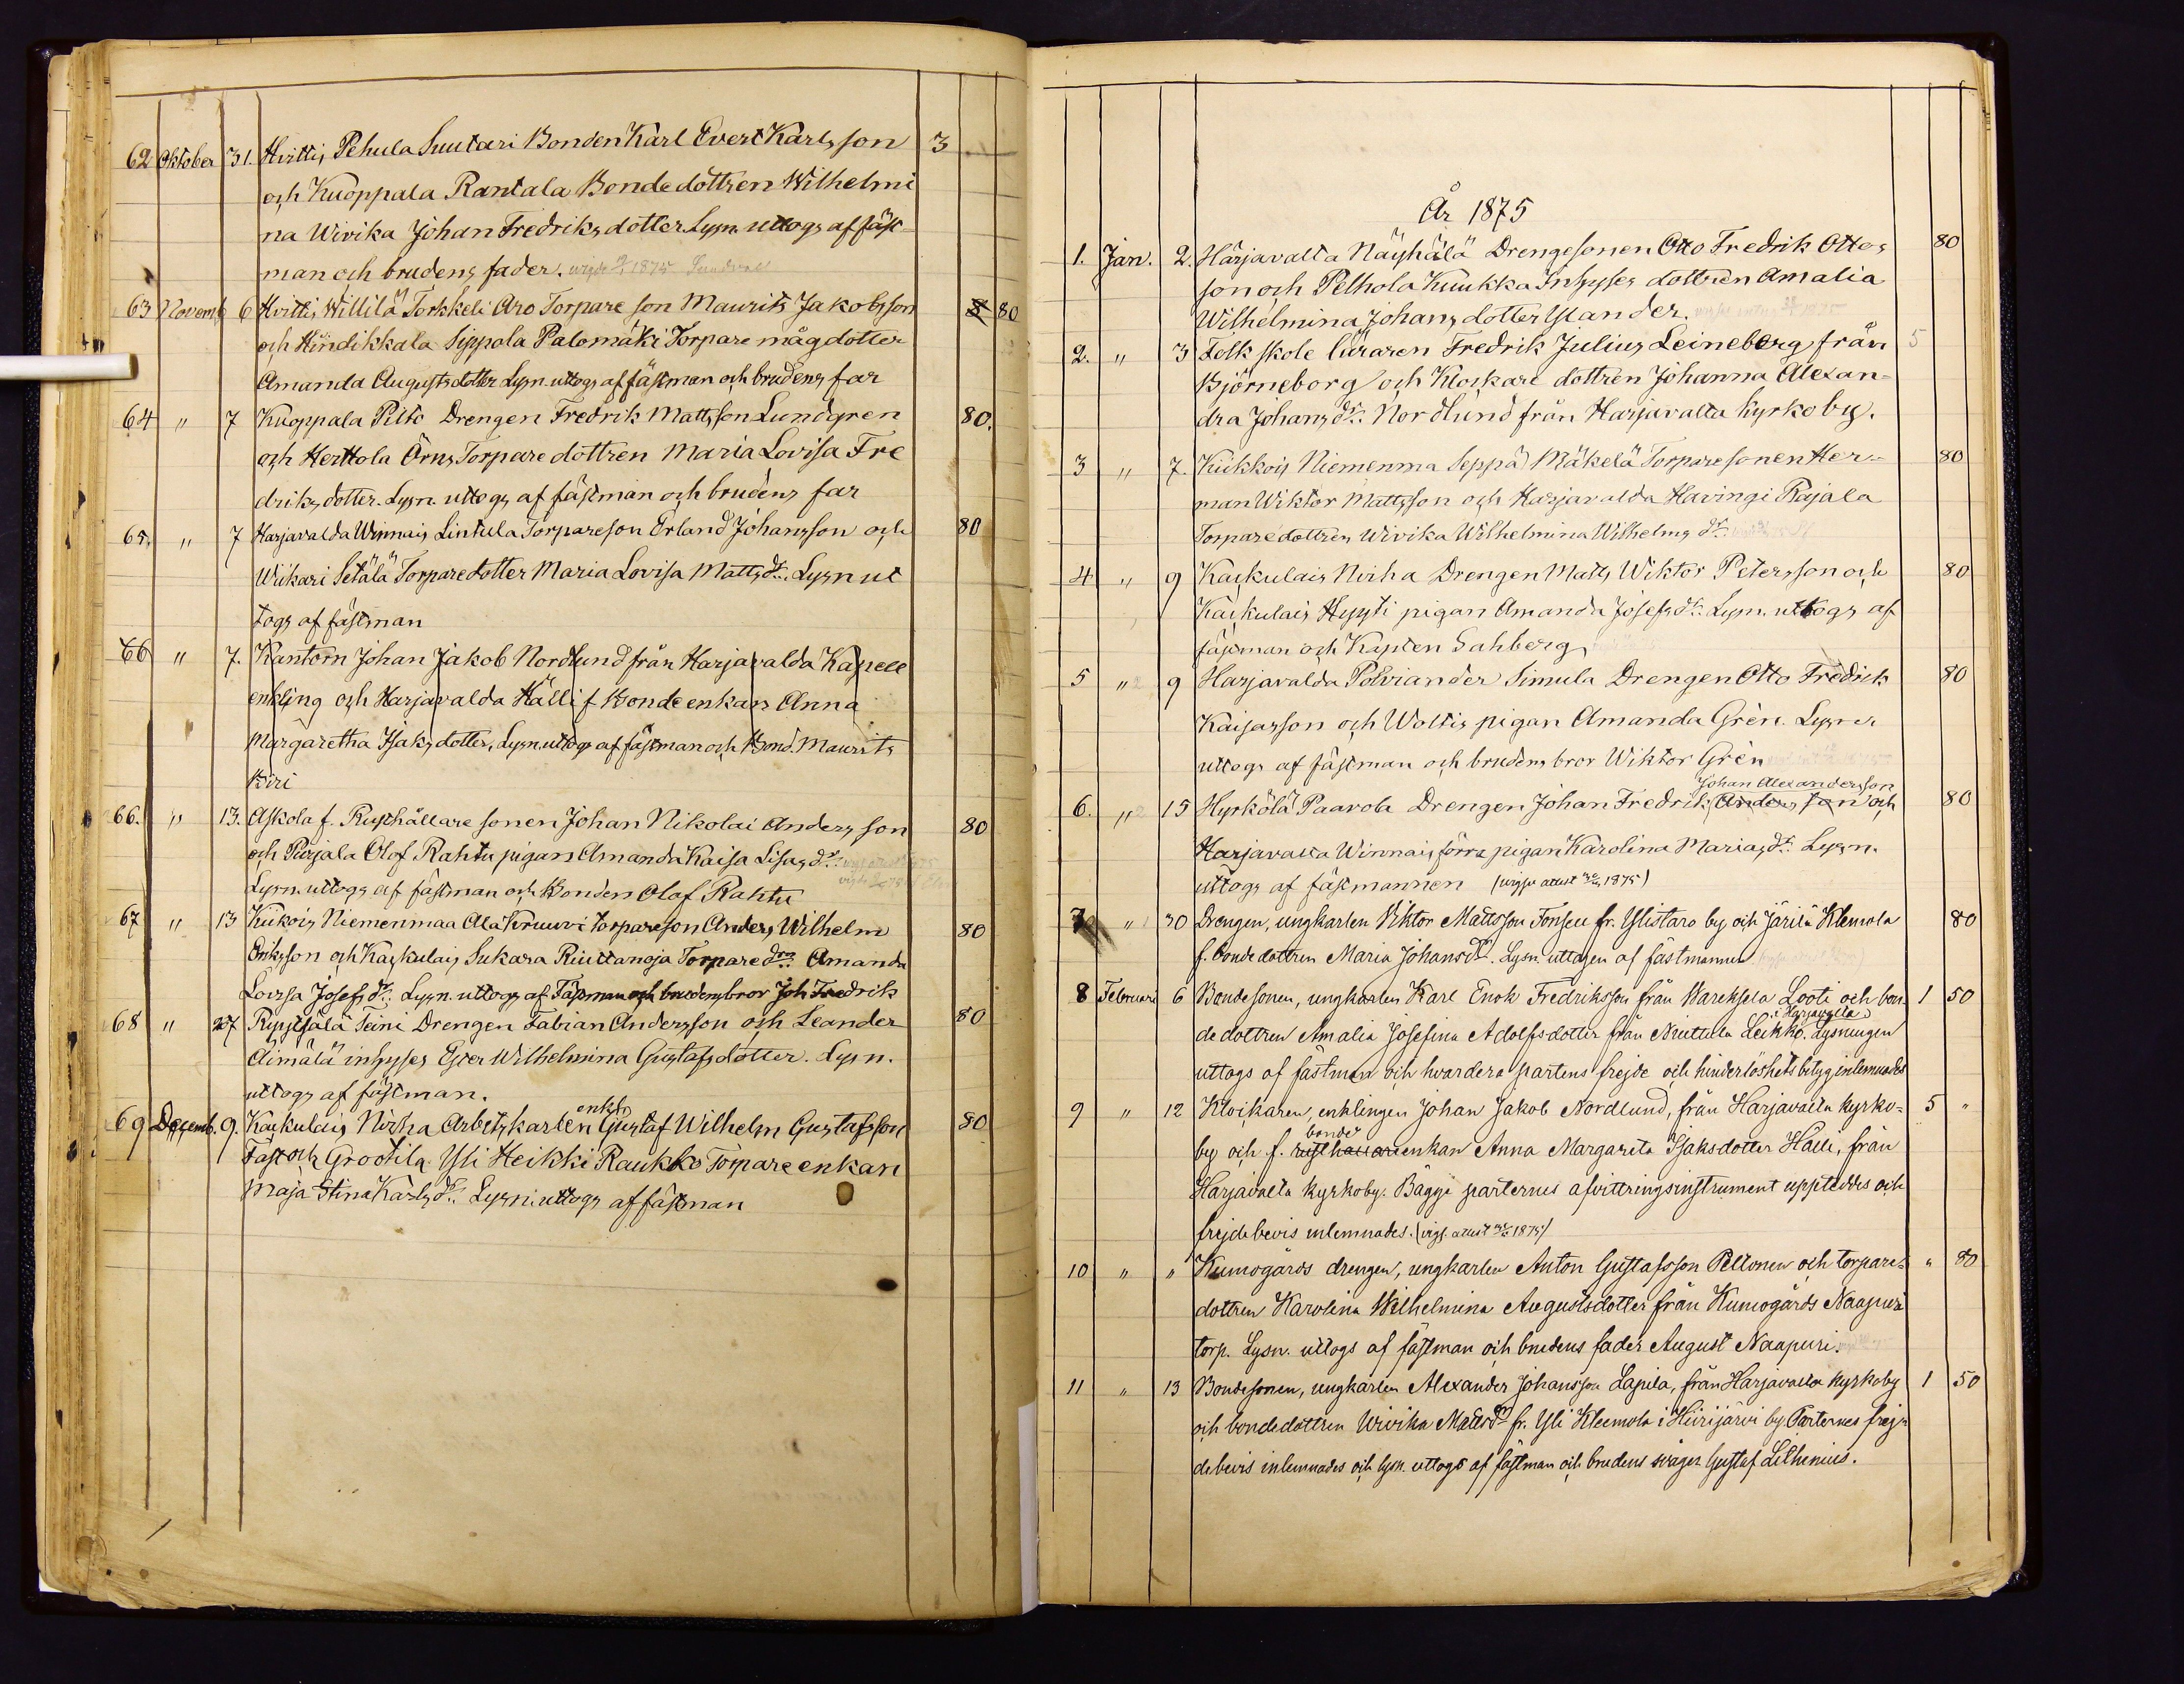 62 Oktober 31. Hvittis Pehula Suutari Bonden Karl Evert Karlsson 3
och Kuoppala Rantala Bondedottren Wilhelmi
na Wivika Johan Fredriksdotter Lysn. uttogs af fäst-
man och brudens fader. 1875
63 Novemb 6 Hvittis Willilä Torkkeli Aro Torpare son Maurits Jakobsson 80
och Hindikkala Sippola Palomäki Torpare mågdotter
Amanda Augustsdotter Lysn. uttogs af fästman och brudens far
64 " 7 Kuoppala Pilto Drengen Fredrik Mattsson Lundgren 80.
och Herttola Örns Torpare dottren Maria Lovisa Fre
driksdotter. Lysn. uttogs af fästman och brudens far
65. " 7 Harjavalda Winnais Lintula Torpareson Erland Johansson och 80
Wiikari Setälä Torparedotter Maria Lovisa Mattsdr. Lysn ut
togs af fästman
66 " 7. Kantorn Johan Jakob Nordlund från Harjavalda Kapell
enkling och Harjavalda Hälli f. Bonde enkan Anna
Margaretha Isaksdotter, Lysn. uttogs af fästman och Bond. Maurits
Kiri
66. " 13. Askola f. Rusthållare sonen Johan Nikolai Anders son 80
och Purjala Olof Rahtu pigan Amanda Kaisa Lisas dr.
Lysn. uttogs af fästman och Bonden Olof Rahtu
67 " 13 Kiikois Niemenmaa Ala Kruuvi torpareson Anders Wilhelm 80
Eriksson och Kaskulais Sukara Riuttanoja Torpare drn Amanda
Lovisa Josefs dr. Lysn. uttogs af Fästman och brudens bror Joh Fredrik
68 " 27 Ryssjälä Teini Drengen Fabian Andersson och Leander 80
Äimälä inhyses Ester Wilhelmina Gustafsdotter. Lysn.
uttogs af fästman.
enkl.
69 Decemb. 9. Kaukulais Nirha Arbetskarlen Gustaf Wilhelm Gustafsson 80
Fast och Grootila Yli Heikki Raukko Torpare enkan
Maja Stina Karls dr. Lysn. uttogs af fästman
År 1875
1. Jan. 2. Harjavalta Näyhälä Drengesonen Otto Fredrik Ottos 80
son och Pelhola Kuukka Inhyses dottren Amalia
Wilhelmina Johans dotter Ylander.
2. " 3 Folkskole läraren Fredrik Julius Leineberg från 5
Björneborg och Klockare dottren Johanna Alexan-
dra Johans dr. Nordlund från Harjavalta Kyrkoby.
3 " 7. Kiikkois Niemenma Seppä Mäkelä Torparesonen Her- 80
man Wiktor Mattsson och Harjavalda Havingi Rajala
Torparedottren Wivika Wilhelmina Wilhelms dr.
4 " 9 Kaukulais Nirha Drengen Matts Wiktor Petersson och 80
Kaukulais Hyyti pigan Amanda Josefs dr. Lysn. uttogs af
fästman och Kapten Sahberg
5 " 9 Harjavalda Polviander Simula Drengen Otto Fredrick 80
Kaisasson och Woltis pigan Amanda Grén. Lysn.
uttogs af fästman och brudens bror Wiktor Grén
Johan Alexandersson
6. " 15 Hyrkölä Paavola Drengen Johan Fredrik Anders son och 80
Harjavalta Winnais förra pigan Karolina Marias dr. Lysn.
uttogs af fästmannen (vigse attest 1875)
7 " 30 Drengen, ungkarlen Viktor Mattsson Tonseu fr. Ylistaro by och Järilä Klemola 80
f. bonde dottren Maria Johans dr. Lysn. uttagen af fästmannen
8 Februari 6 Bondesonen, ungkarlen Karl Enok Fredriksson från Wareksela Looti och bon- 1 50
i Harjavalta
de dottren Amalia Josefina Adolfsdotter från Niuttula Leikko. Lysningen
uttogs af fästman och hvardera partens frejde och hinderlöshets betyg inlemnades
9 " 12 Klockaren, enklingen Johan Jakob Nordlund, från Harjavalta kyrko- 5 "
bonde
by och f. rusthållareenkan Anna Margareta Isaksdotter Hälli, från
Harjavalta kyrkoby. Bägge parternes afvittringsinstrument uppteddes och
frejdebevis inlemnades. (vigs. attest 1875)
10 " " Kumogårds drengen, ungkarlen Anton Gustafsson Peltonen och torpare- " 80
dottren Karolina Wilhelmina Augustsdotter från Kumogårds Naapuri
torp. Lysn. uttogs af fästman och brudens fader August Naapuri.
11 " 13 Bondesonen, ungkarlen Alexander Johansson Lapila, från Harjavalta kyrkoby 1 50
och bondedottren Wivika Matts dr fr. Yli Kleemola i Hiirijärvi by. Parternes frej-
debevis inlemnades och lysn. uttogs af fästman och brudens svåger Gustaf Lilhenius.